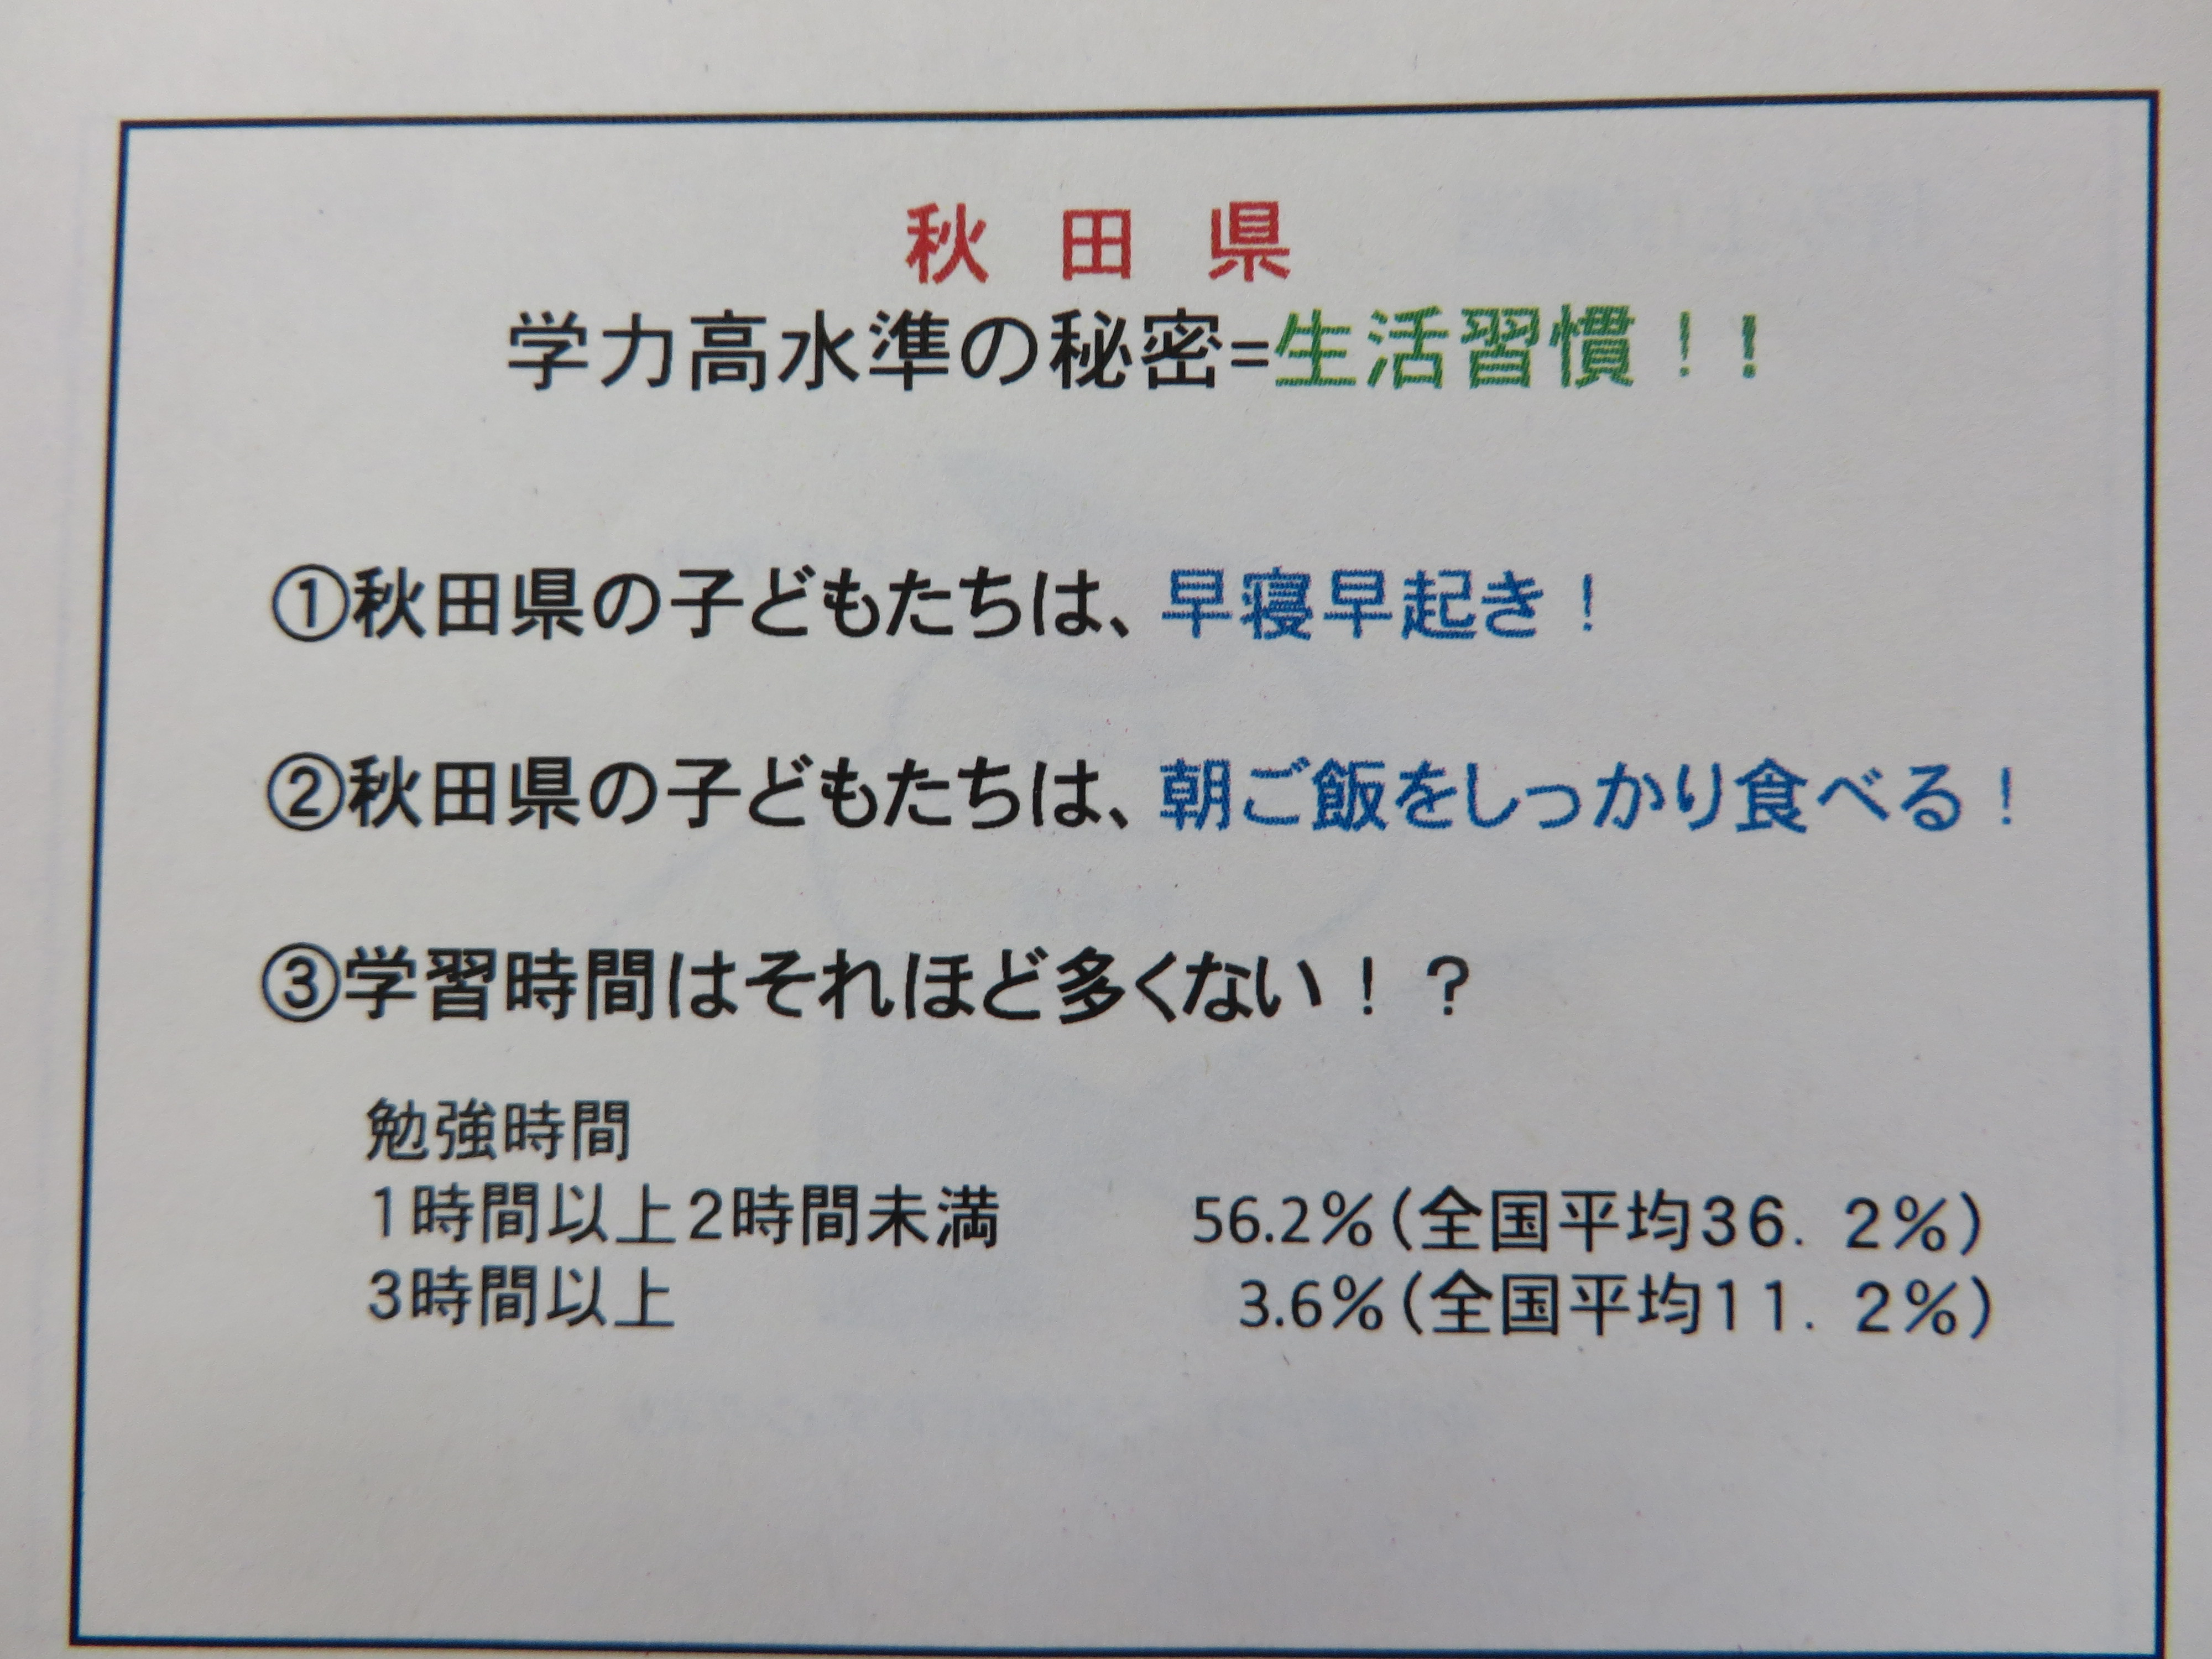 秋　田　県
学力高水準の秘密=生活習慣！！
①秋田県の子どもたちは、早寝早起き！
②秋田県の子どもたちは、朝ご飯をしっかり食べる！
③学習時間はそれほど多くない！？
勉強時間
1時間以上2時間未満　56.2%(全国平均36．2%)
3時間以上　3.6%(全国平均11．2%)